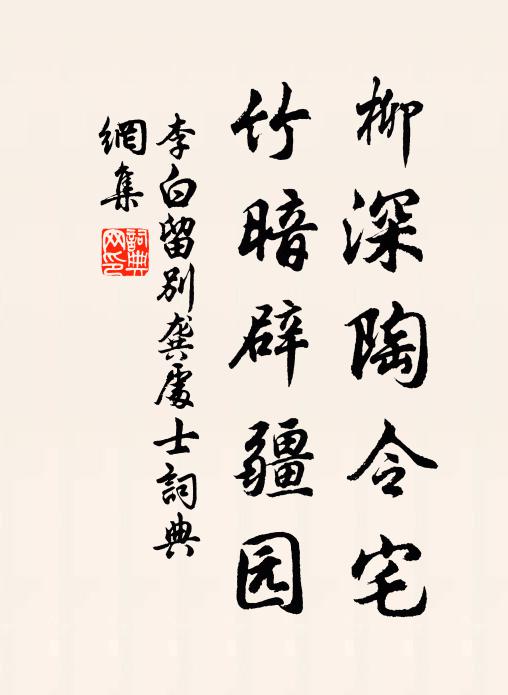 柳深陶令宅
竹暗辟疆园
李白留別龔處士詞典
網集
詞典
网印